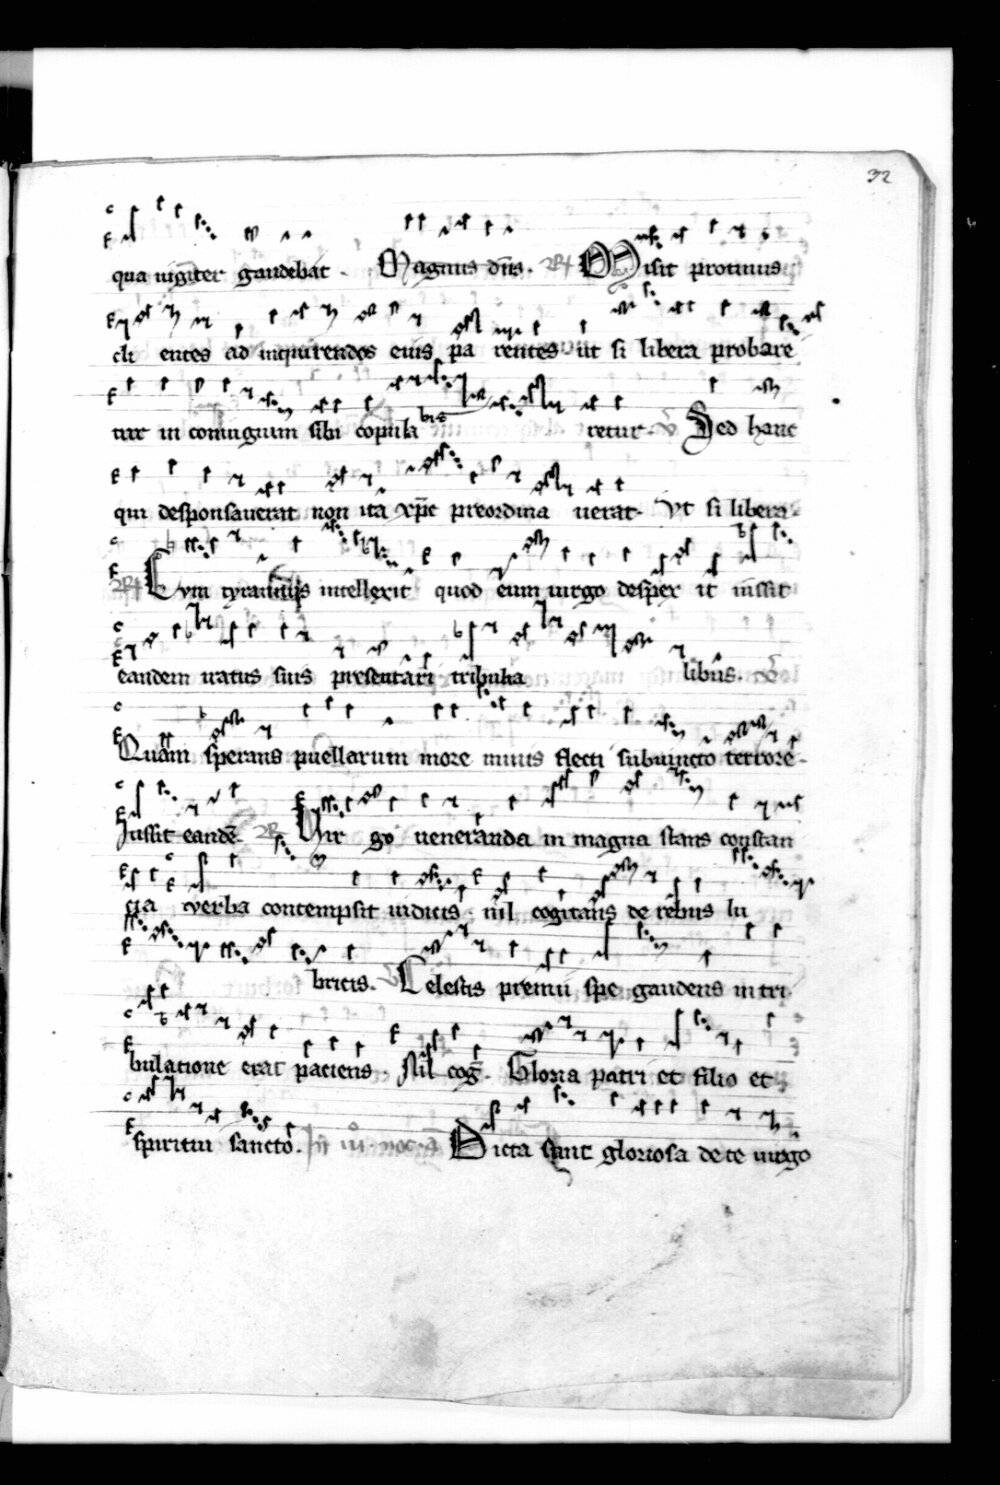 32
qua iugiter gaudebat. Magnus dn̄s. R Misit protinus
cli entes ad inquirendos eius pa rentes ut si libera probare
tur in coniugium sibi copula retur. V Sed hanc
qui desponsauerat non ita xp̄c preordina uerat. Vt si libera
R Cum tyrannus intellexit quod eum uirgo despex it iussit
eandem uatus suis presentari tribula libus. V
Quam sperans puellarum more minis flecti subuincto terrore.
Iussit eandē. R Vir go ueneranda in magna stans constan
cia uerba contempsit iudicis nil cogitans de rebus lu
bricis. V Celestis premii spe gaudens in tri
bulatione erat paciens. Nil cog. Gloria patri et filio et
spiritui sancto. In iii noc a Dicta sunt gloriosa de te uirgo